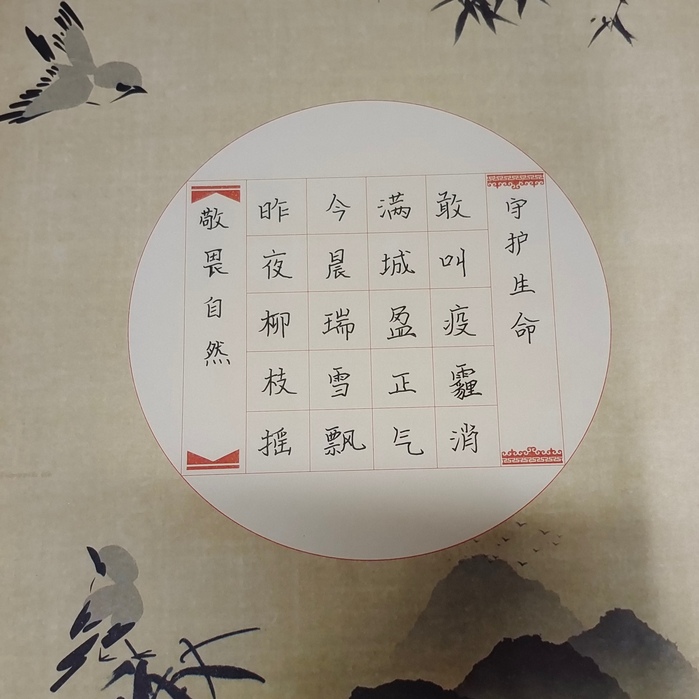 敬畏自然
昨夜柳枝摇
今晨瑞雪飘
满城盈正气
敢叫疫霾消
守护生命